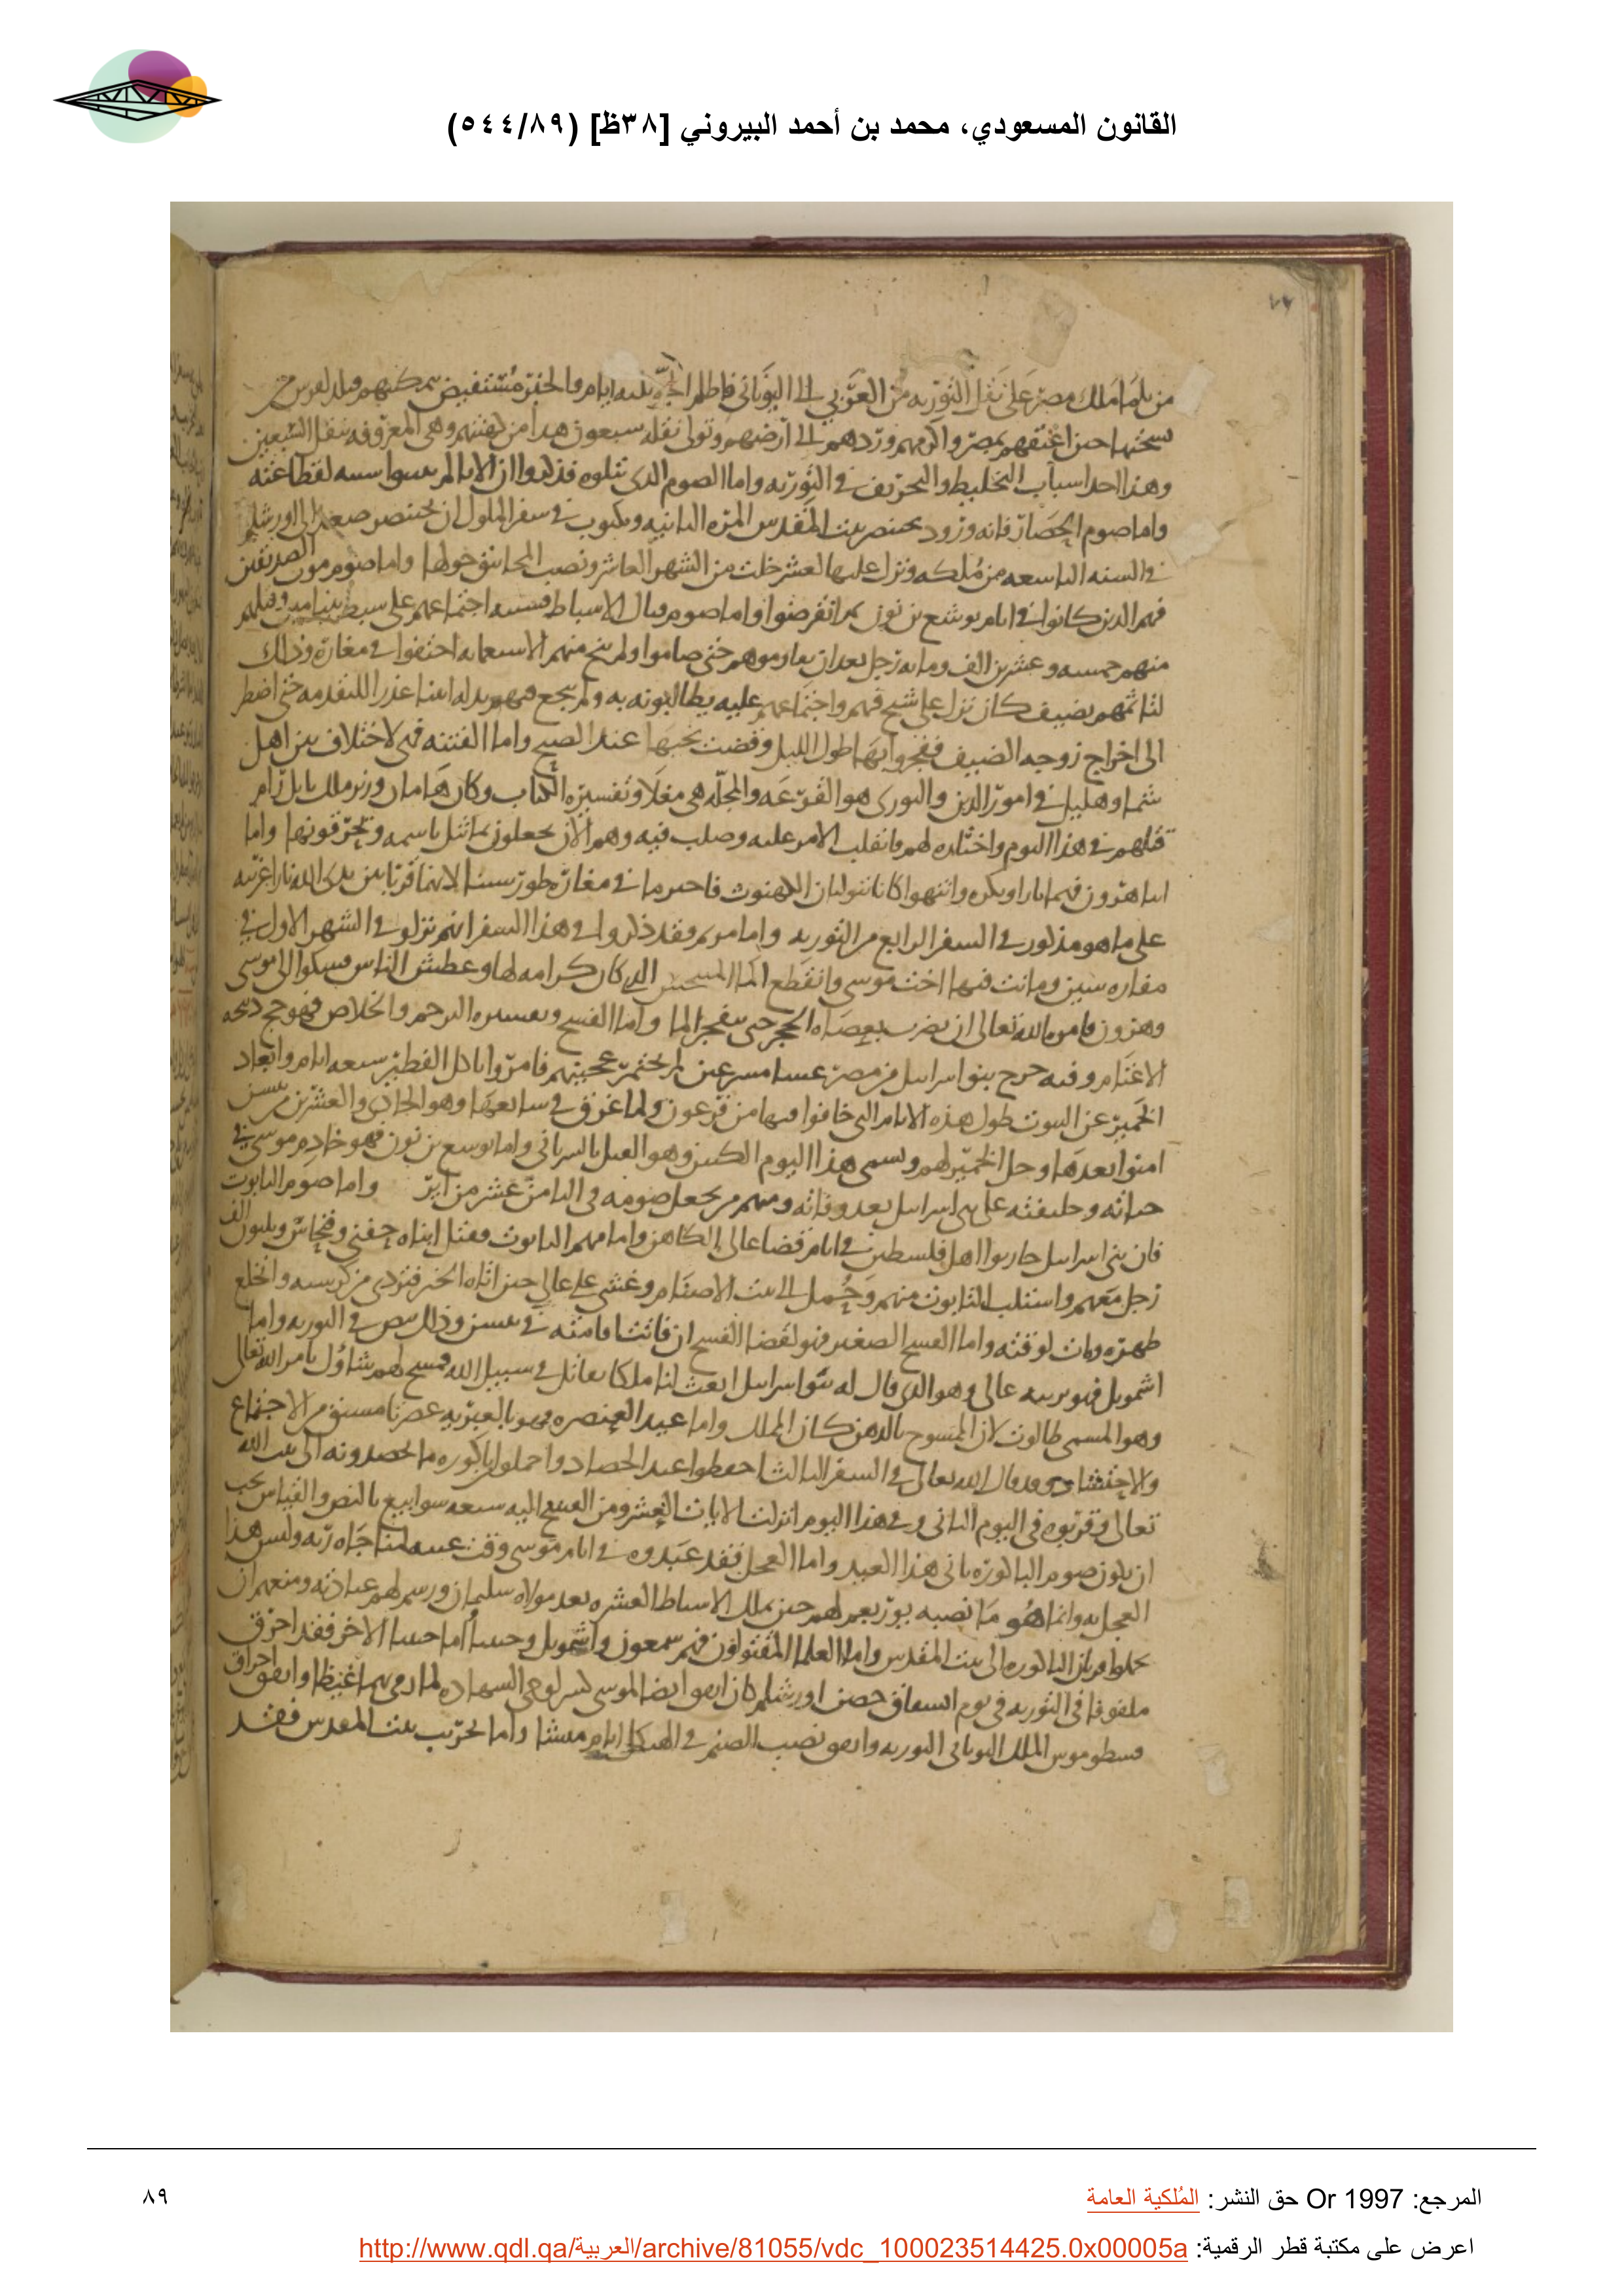 القانون المسعودي، محمد بن أحمد البيروني [٣٨ظ] (٥٤٤/٨٩)
٧٧
من تلما ملك مصر على نقل التورية من العبري الى اليوناني فاظلم الجو ثلثه ايام والخبر مستفيض
نسختها حين اعتقهم بمصر واكرمهم وردهم الى ارضهم وتولى نقله سبعون هذا من كهنتهم وهي المعروفه بنقل السبعين
وهذا احد اسباب التخليط والتحريف في التوريه واما الصوم الذي تتلوه فذكروا ان الابا لم يبينوا سببه لفظاعته
واما صوم الحصار فانه ورود بختنصر بيت المقدس المرة الثانيه ومكتوب في سفر الملوك ان بختنصر صعد الى اورشليم
في السنه التاسعه من ملكه ونزل عليها لعشر خلت من الشهر العاشر ونصب المجانيق حولها واما صوم موت الصديقين
فهم الدين كانوا في ايام يوشع بن نون ثم انقرضوا واما صوم قتال الاسباط فسببه اجتماعهم على سبط بنيامين وقتلهم
منهم خمسه وعشرين الف ومايه رجل بعد ان تقاوموهم حتى صاموا ولم ينج منهم الا ستمايه اختفوا في مغارة وذلك
لتاثمهم بضيف كان نزل على شيخ فيهم واجتماعهم عليه يطالبونه به ولم ينجع فيهم بدله ابنتا عذرا للتقدمه حتى اضطر
الى اخراج زوجه الضيف ففجروا بها طول الليل وقضت نحبها عند الصبح واما الفتنه فهي لاختلاف بين اهل
شما وهليل في امور الدين والبوري هو القرعه والمجله هي مغلا وتفسيره الكتاب وكان هامان وزير ملك بابل رام
قتلهم في هذا اليوم واختاره لهم فانقلب الامر عليه وصلب فيه وهم الان يجعلون تماثيل باسمه ويحرقونها واما
ابنا هرون فهما ناراو بكره وابيهوا كانا يتوليان الكهنوت فاحترقا في مغارة طور سينا لانهما قربا بين يدي الله نارا غريبه
على ما هو مذكور في السفر الرابع من التوريه واما مريم فقد ذكروا في هذا السفر انهم نزلو في الشهر الاول في
مفاره سين وماتت فيها اخت موسى وانقطع الما الذي كان كرامه لها وعطش الناس فشكوا الى موسى
وهرون فامره الله تعالى ان يضرب بعصاه الحجر حتى ينفجر الما واما الفسح وتفسيره الترحم والخلاص فهو حج ذبيحه
الاغنام وفيه خرج بنو اسراييل من مصر عشيا مسرعين لم يختمر عجينهم فامروا باكل الفطير سبعه ايام وابعاد
الخمير عن البيوت طول هذه الايام التي خافوا فيها من فرعون ولما غرق في سابعها وهو الحادي والعشرين من نيسن
امنوا بعدها وحل الخمير لهم ويسمى هذا اليوم الكبس وهو بالسرياني واما يوشع بن نون فهو خادم موسى في
حياته وخليفته على بني اسرايل بعد وفاته ومنهم من يجعل صومه في الثامن عشر من اير واما صوم التابوت
فان بني اسرايل حاربوا اهل فلسطين في ايام قضا عالى الكاهن واما منهم التابوت فقتل ابناه حفني وفنحاس وثلثون الف
رجل معهم واستلب التابوت منهم وحمل الى بيت الاصنام وغشي على عالي حين اتاه الخبر فتردى من كرسيه وانخلع
ظهره ومات لوقته واما الفسح الصغير فهو لقضا الفسح ان فاتت اقامته في نيسن وذلك بنص في التوريه واما
اشمويل فهو تربيه عالي وهو الذي قال له بنوا اسرايل ابعث لنا ملكا نقاتل في سبيل الله فمسح لهم شاول بامر الله تعالى
وهو المسمى طالوت لان الممسوح بالدهن كان الملك واما عيد العنصره فهو بالعبريه عصرتا مشتق من الاجتماع
والاحتشاد وقد قال الله تعالى في السفر الثالث احفظوا عيد الحصاد واحملوا باكوره ما تحصدونه الى بيت الله
تعالى وقربوه في اليوم الثاني وفي هذا اليوم انزلت الايات العشر ومن الفسح اليه سبعه سوابيع بالنص والقياس يجب
ان يكون صوم الباكوره ثاني هذا العيد واما العجل فقد عبدوه في ايام موسى وقت غيبه لمناجاه ربه وليس هذا
العجل به وانما هو ما نصبه يوربعم لهم حين ملك الاسباط العشره بعد مولاه سليمان ورسم لهم عبادته ومنعهم ان
يحملوا قربان الباكوره الى بيت المقدس واما العلما المقتولون فهم سمعون واشمويل وحنينا اما حنينا الاخر فقد احرق
ملفوفا في التوريه في يوم حصن اورشليم كان اتفق ايضا لموسى كسر لوحي الشهاده لما رمى بهما غيظا واتفق احراق
فسطوموس الملك اليوناني التوريه واتفق نصب الصنم في الهيكل ايام ميشا واما تخريب بيت المقدس فقد
المرجع: Or 1997 حق النشر: المُلكية العامة
٨٩
اعرض على مكتبة قطر الرقمية: http://www.qdl.qa/العربية/archive/81055/vdc_100023514425.0x00005a